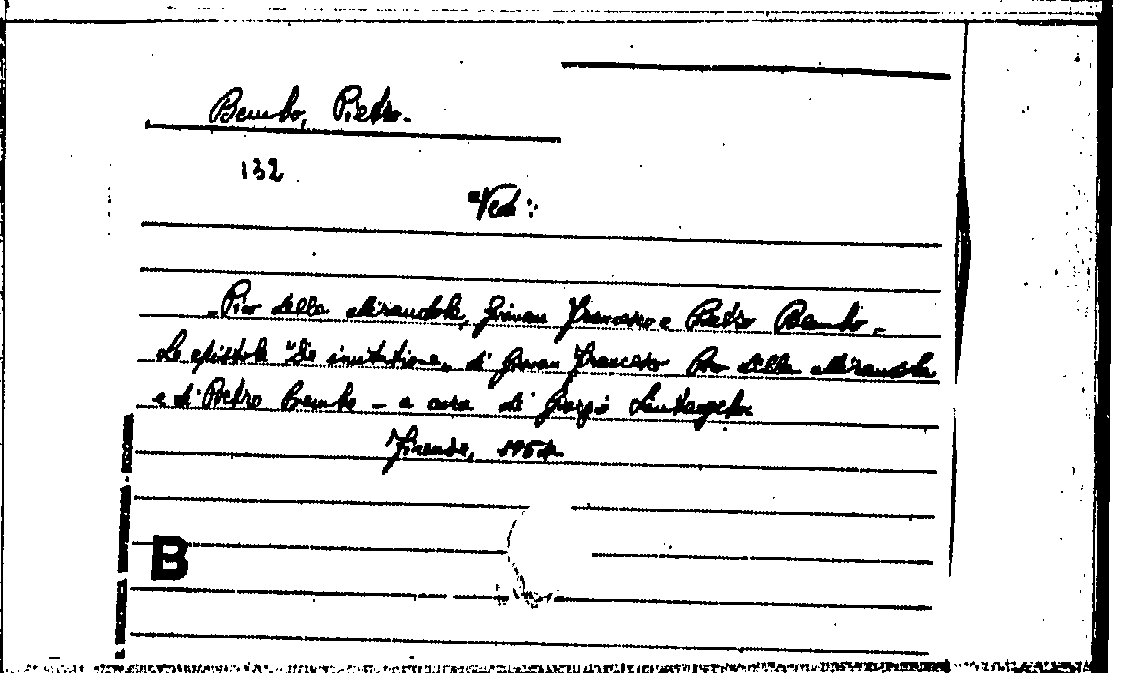 Bembo, Pietro.
132
Vedi:
Pico della Mirandola, Giovan Francesco e Pietro Bembo.
Le epistole "De imitatione" di Giovan Francesco Pico della Mirandola
e di Pietro Bembo - a cura di Giorgio Santangelo
Firenze, 1954
B